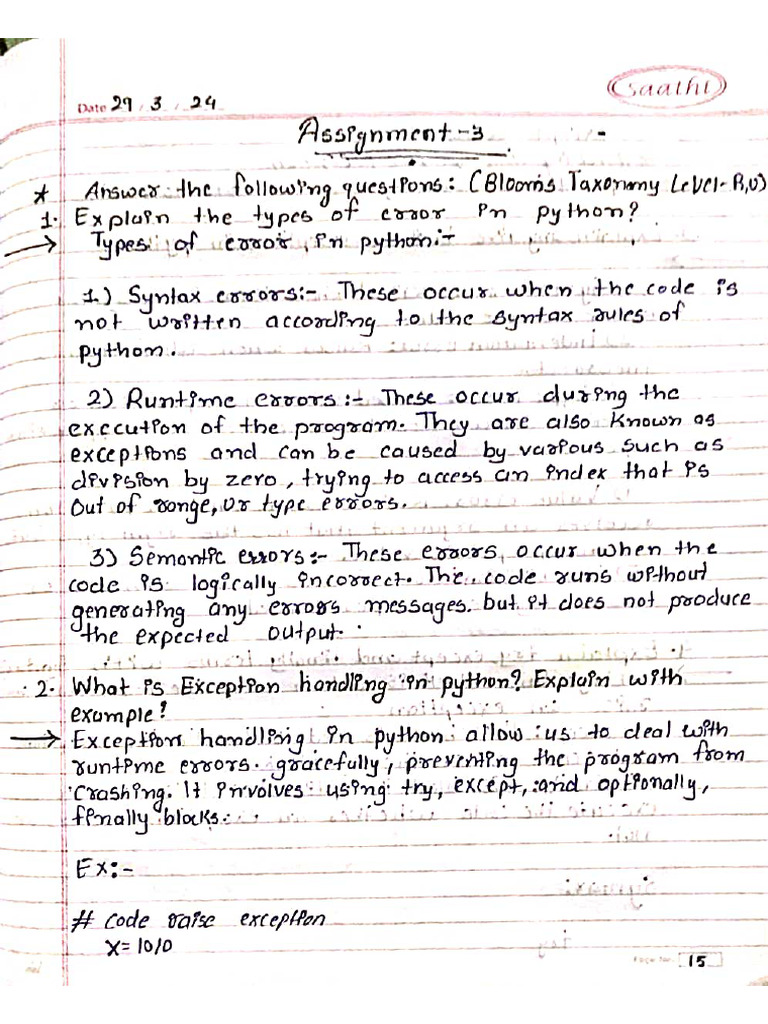 Saathi
Date 29 / 3 / 24
Assignment -3
* Answer the following questions: (Blooms Taxonomy Level- R,U)
1. Explain the types of error in python?
→ Types of error in python:-
1.) Syntax errors:- These occur when the code is
not written according to the syntax rules of
python.
2) Runtime errors:- These occur during the
execution of the program. They are also known as
exceptions and can be caused by various such as
division by zero, trying to access an index that is
out of range, or type errors.
3) Semantic errors:- These errors occur when the
code is logically incorrect. The code runs without
generating any errors messages. but it does not produce
the expected output.
2. What is Exception handling in python? Explain with
example?
→ Exception handling in python allow us to deal with
runtime errors. gracefully, preventing the program from
crashing. It involves using try, except, and optionally,
finally blocks.
Ex:-
# code raise exception
x=10/0
Page No. 15